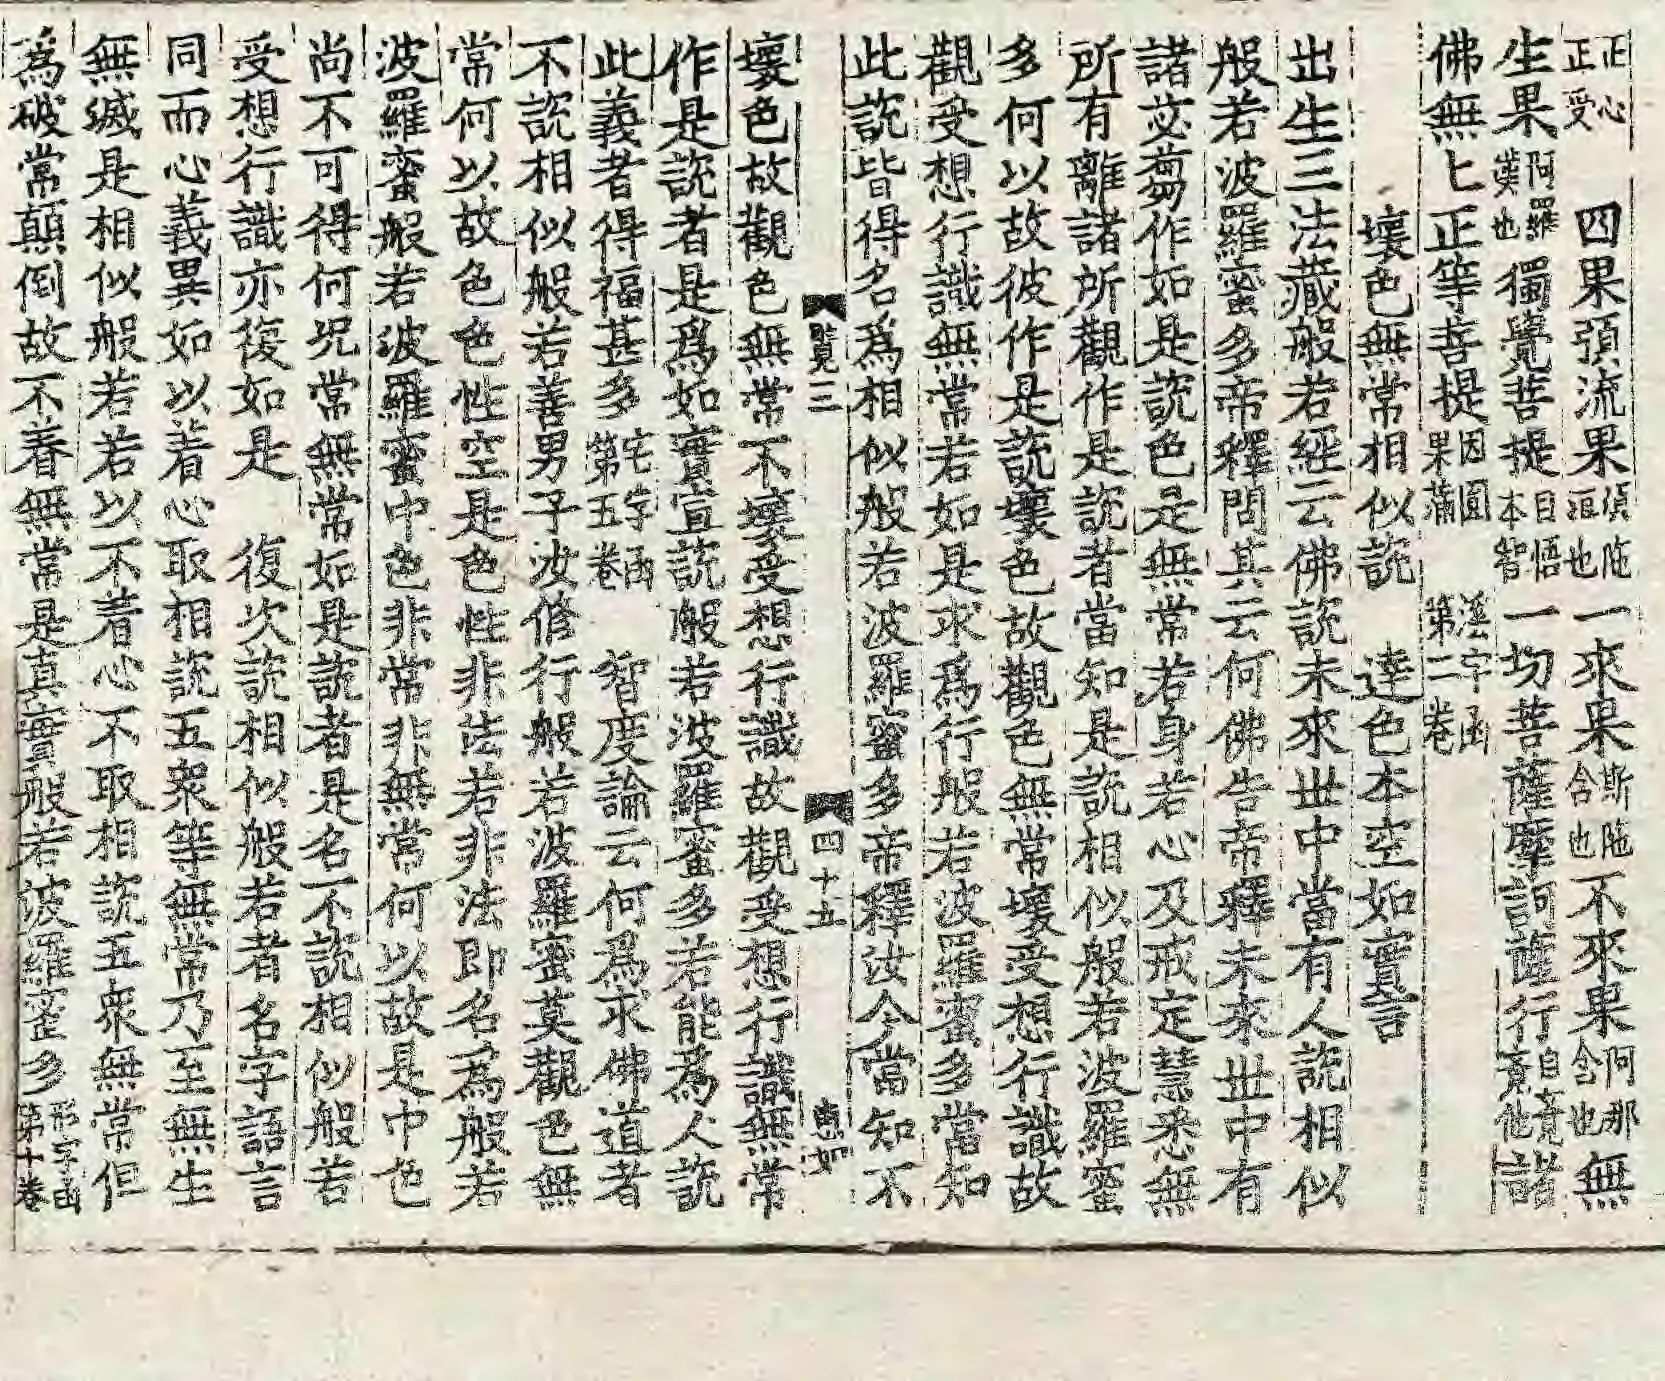 正心正受　四果預流果須陁洹也一來果斯陁含也不來果阿那含也無
生果阿羅漢也獨覺菩提自悟本智一切菩薩摩訶薩行自竟竟他諸
佛無上正等菩提因圓果滿　字函第二卷
壞色無常相似說　達色本空如實言
出生三法藏般若經云佛說未來世中當有人說相似
般若波羅蜜多帝釋問其云何佛告帝釋未來世中有
諸苾蒭作如是說色是無常若身若心及戒定慧悉無
所有離諸所觀作是說者當知是說相似般若波羅蜜
多何以故彼作是說壞色故觀色無常壞受想行識故
觀受想行識無常若如是求為行般若波羅蜜多當知
此說皆得名為相似般若波羅蜜多帝釋汝今當知不
三　四十五
壞色故觀色無常不壞受想行識故觀受想行識無常
作是說者是為如實宣說般若波羅蜜多若能為人說
此義者得福甚多宅字函第五卷　智度論云何為求佛道者
不說相似般若善男子汝修行般若波羅蜜莫觀色無
常何以故色色性空是色色性非法若非法即名為般若
波羅蜜般若波羅蜜中色非常非無常何以故是中色
尚不可得何況常無常如是說者是名不說相似般若
受想行識亦復如是　復次說相似般若者名字語言
同而心義異如以著心取相說五眾等無常乃至無生
無滅是相似般若若以不著心不取相說五眾無常但
為破常顛倒故不著無常是真實般若波羅蜜多形字函第十卷